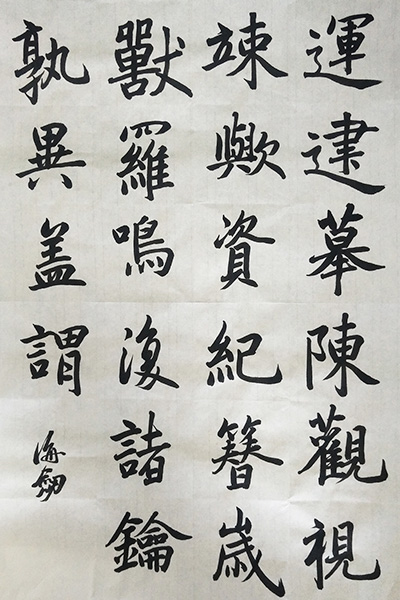 運逮摹陳觀視
竦歟資紀簪歲
獸羅鳴復諸鑰
孰異盖謂
海劔